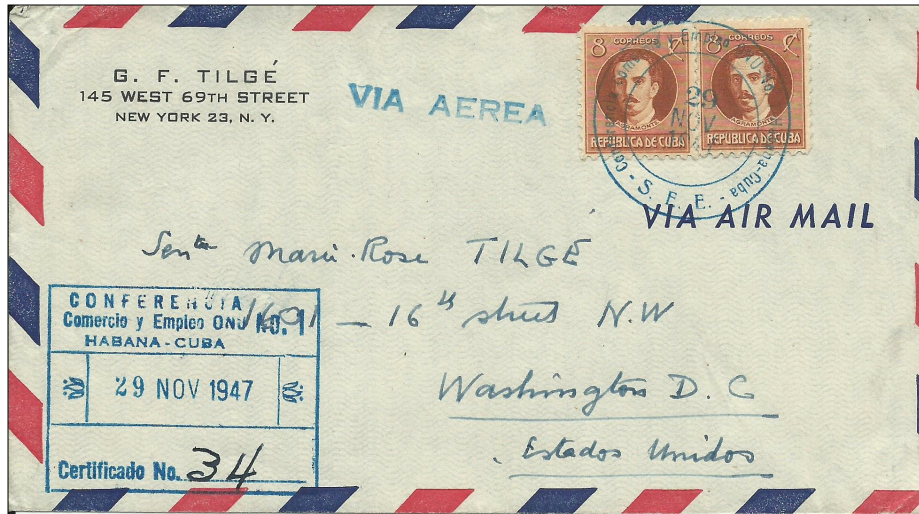 G. F. TILGÉ
145 WEST 69TH STREET
NEW YORK 23, N. Y.
VIA AEREA
8 CORREOS ¢
AGRAMONTE
REPUBLICA DE CUBA
8 CORREOS ¢
AGRAMONTE
REPUBLICA DE CUBA
29
NOV
- S. F. E. -
VIA AIR MAIL
Marie-Rose TILGÉ
1691 — 16th street N.W
Washington D.C
Estados Unidos
CONFERENCIA
Comercio y Empleo ONU NO. 1
HABANA-CUBA
29 NOV 1947
Certificado No. 34